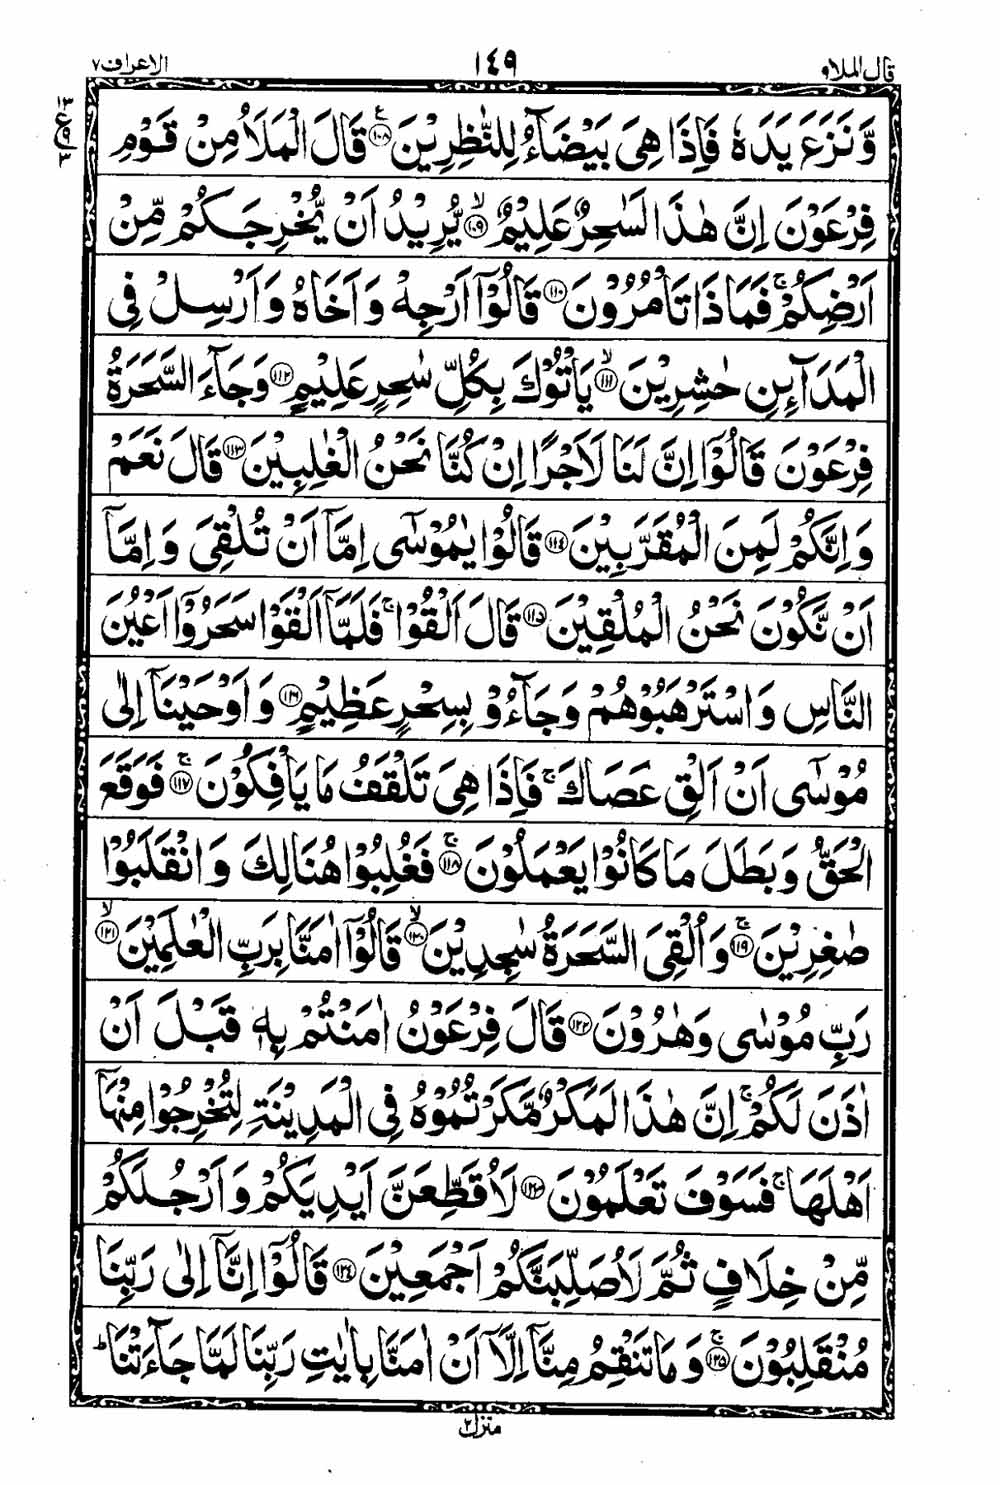 قال الملا ۹ ١٤٩ الاعراف ۷
وَّنَزَعَ يَدَهٗ فَاِذَا هِىَ بَيْضَآءُ لِلنّٰظِرِيْنَ ﴿١٠٨﴾ قَالَ الْمَلَاُ مِنْ قَوْمِ
فِرْعَوْنَ اِنَّ هٰذَا لَسٰحِرٌ عَلِيْمٌ ﴿١٠٩﴾ۙ يُّرِيْدُ اَنْ يُّخْرِجَكُمْ مِّنْ
اَرْضِكُمْ ۚ فَمَاذَا تَاْمُرُوْنَ ﴿١١٠﴾ قَالُوْۤا اَرْجِهْ وَاَخَاهُ وَاَرْسِلْ فِى
الْمَدَآئِنِ حٰشِرِيْنَ ﴿١١١﴾ۙ يَاْتُوْكَ بِكُلِّ سٰحِرٍ عَلِيْمٍ ﴿١١٢﴾ وَجَآءَ السَّحَرَةُ
فِرْعَوْنَ قَالُوْۤا اِنَّ لَنَا لَاَجْرًا اِنْ كُنَّا نَحْنُ الْغٰلِبِيْنَ ﴿١١٣﴾ قَالَ نَعَمْ
وَاِنَّكُمْ لَمِنَ الْمُقَرَّبِيْنَ ﴿١١٤﴾ قَالُوْا يٰمُوْسٰٓى اِمَّاۤ اَنْ تُلْقِىَ وَاِمَّاۤ
اَنْ نَّكُوْنَ نَحْنُ الْمُلْقِيْنَ ﴿١١٥﴾ قَالَ اَلْقُوْا ۚ فَلَمَّاۤ اَلْقَوْا سَحَرُوْۤا اَعْيُنَ
النَّاسِ وَاسْتَرْهَبُوْهُمْ وَجَآءُوْ بِسِحْرٍ عَظِيْمٍ ﴿١١٦﴾ وَاَوْحَيْنَاۤ اِلٰى
مُوْسٰٓى اَنْ اَلْقِ عَصَاكَ ۚ فَاِذَا هِىَ تَلْقَفُ مَا يَاْفِكُوْنَ ﴿١١٧﴾ۚ فَوَقَعَ
الْحَقُّ وَبَطَلَ مَا كَانُوْا يَعْمَلُوْنَ ﴿١١٨﴾ۚ فَغُلِبُوْا هُنَالِكَ وَانْقَلَبُوْا
صٰغِرِيْنَ ﴿١١٩﴾ۚ وَاُلْقِىَ السَّحَرَةُ سٰجِدِيْنَ ﴿١٢٠﴾ۙ قَالُوْۤا اٰمَنَّا بِرَبِّ الْعٰلَمِيْنَ ﴿١٢١﴾ۙ
رَبِّ مُوْسٰى وَهٰرُوْنَ ﴿١٢٢﴾ قَالَ فِرْعَوْنُ اٰمَنْتُمْ بِهٖ قَبْلَ اَنْ
اٰذَنَ لَكُمْ ۚ اِنَّ هٰذَا لَمَكْرٌ مَّكَرْتُمُوْهُ فِى الْمَدِيْنَةِ لِتُخْرِجُوْا مِنْهَاۤ
اَهْلَهَا ۚ فَسَوْفَ تَعْلَمُوْنَ ﴿١٢٣﴾ لَاُقَطِّعَنَّ اَيْدِيَكُمْ وَاَرْجُلَكُمْ
مِّنْ خِلَافٍ ثُمَّ لَاُصَلِّبَنَّكُمْ اَجْمَعِيْنَ ﴿١٢٤﴾ قَالُوْۤا اِنَّاۤ اِلٰى رَبِّنَا
مُنْقَلِبُوْنَ ﴿١٢٥﴾ۚ وَمَا تَنْقِمُ مِنَّاۤ اِلَّاۤ اَنْ اٰمَنَّا بِاٰيٰتِ رَبِّنَا لَمَّا جَآءَتْنَا ؕ
منزل ۲